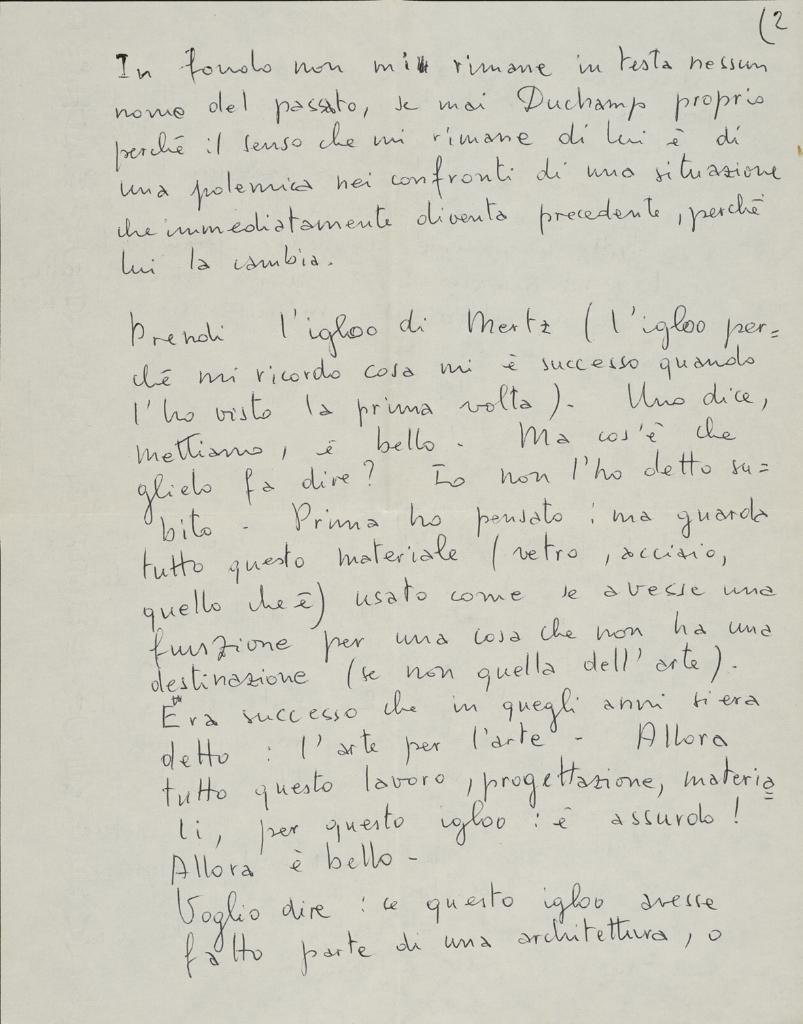 (2
In fondo non mi rimane in testa nessun
nome del passato, se mai Duchamp proprio
perché il senso che mi rimane di lui è di
una polemica nei confronti di una situazione
che immediatamente diventa precedente, perché
lui la cambia.
Prendi l'igloo di Mertz (l'igloo per=
ché mi ricordo cosa mi è successo quando
l'ho visto la prima volta). Uno dice,
mettiamo, è bello. Ma cos'è che
glielo fa dire? Io non l'ho detto su=
bito - Prima ho pensato: ma guarda
tutto questo materiale (vetro, acciaio,
quello che è) usato come se avesse una
funzione per una cosa che non ha una
destinazione (se non quella dell'arte).
Era successo che in quegli anni si era
detto: l'arte per l'arte - Allora
tutto questo lavoro, progettazione, materia=
li, per questo igloo: è assurdo!
Allora è bello -
Voglio dire: se questo igloo avesse
fatto parte di una architettura, o